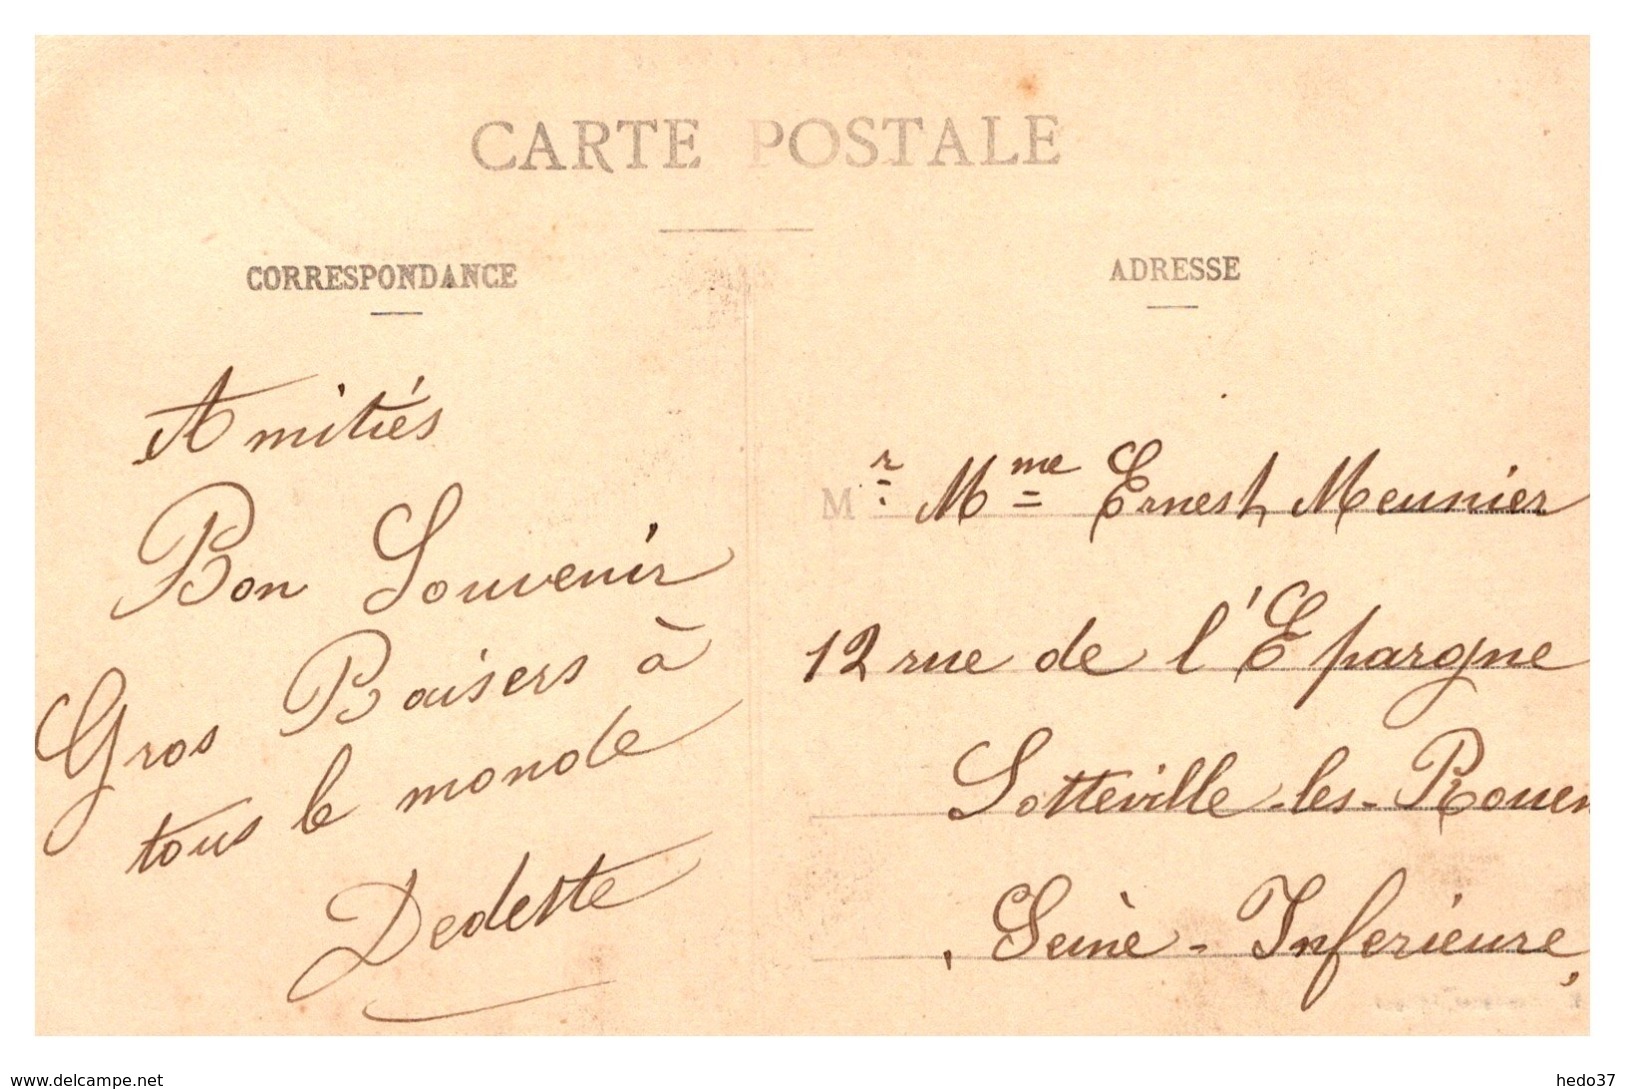 CARTE POSTALE
CORRESPONDANCE
Amitiés
Bon Souvenir
Gros Baisers à
tous le monde
Dedette
ADRESSE
Mr. Mme Ernest Meunier
12 rue de l'Epargne
Sotteville-les-Rouen
Seine-Inferieure,
www.delcampe.net
hedo37